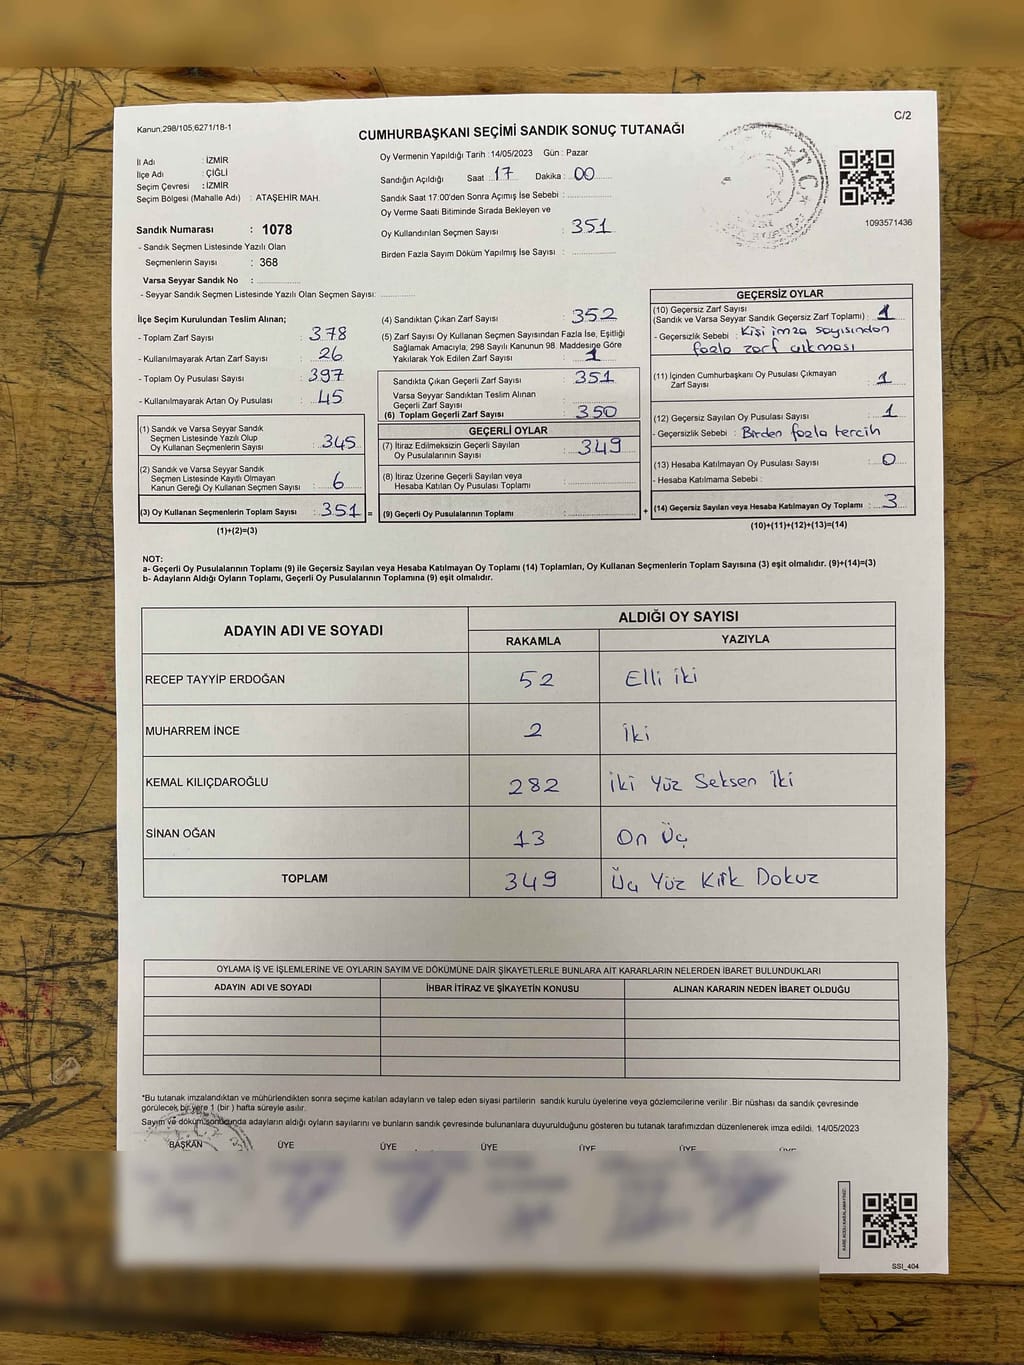 Kanun,298/105;6271/18-1
C/2
CUMHURBAŞKANI SEÇİMİ SANDIK SONUÇ TUTANAĞI
İl Adı : İZMİR
İlçe Adı : ÇİĞLİ
Seçim Çevresi : İZMİR
Seçim Bölgesi (Mahalle Adı) : ATAŞEHİR MAH.
Sandık Numarası : 1078
- Sandık Seçmen Listesinde Yazılı Olan
Seçmenlerin Sayısı : 368
Varsa Seyyar Sandık No :
- Seyyar Sandık Seçmen Listesinde Yazılı Olan Seçmen Sayısı:
Oy Vermenin Yapıldığı Tarih : 14/05/2023 Gün : Pazar
Sandığın Açıldığı Saat : 17 Dakika : 00
Sandık Saat 17:00'den Sonra Açımış İse Sebebi :
Oy Verme Saati Bitiminde Sırada Bekleyen ve
Oy Kullandırılan Seçmen Sayısı : 351
Birden Fazla Sayım Döküm Yapılmış İse Sayısı :
T.C.
1093571436
İlçe Seçim Kurulundan Teslim Alınan;
- Toplam Zarf Sayısı : 378
- Kullanılmayarak Artan Zarf Sayısı : 26
- Toplam Oy Pusulası Sayısı : 397
- Kullanılmayarak Artan Oy Pusulası : 45
(1) Sandık ve Varsa Seyyar Sandık
Seçmen Listesinde Yazılı Olup
Oy Kullanan Seçmenlerin Sayısı : 345
(2) Sandık ve Varsa Seyyar Sandık
Seçmen Listesinde Kayıtlı Olmayan
Kanun Gereği Oy Kullanan Seçmen Sayısı : 6
(3) Oy Kullanan Seçmenlerin Toplam Sayısı : 351 =
(1)+(2)=(3)
(4) Sandıktan Çıkan Zarf Sayısı : 352
(5) Zarf Sayısı Oy Kullanan Seçmen Sayısından Fazla İse, Eşitliği
Sağlamak Amacıyla, 298 Sayılı Kanunun 98. Maddesine Göre
Yakılarak Yok Edilen Zarf Sayısı : 1
Sandıkta Çıkan Geçerli Zarf Sayısı : 351
Varsa Seyyar Sandıktan Teslim Alınan
Geçerli Zarf Sayısı :
(6) Toplam Geçerli Zarf Sayısı : 350
GEÇERLİ OYLAR
(7) İtiraz Edilmeksizin Geçerli Sayılan
Oy Pusulalarının Sayısı : 349
(8) İtiraz Üzerine Geçerli Sayılan veya
Hesaba Katılan Oy Pusulası Toplamı :
(9) Geçerli Oy Pusulalarının Toplamı : +
GEÇERSİZ OYLAR
(10) Geçersiz Zarf Sayısı
(Sandık ve Varsa Seyyar Sandık Geçersiz Zarf Toplamı) : 1
- Geçersizlik Sebebi : Kişi imza sayısından
fazla zarf çıkması
(11) İçinden Cumhurbaşkanı Oy Pusulası Çıkmayan
Zarf Sayısı : 1
(12) Geçersiz Sayılan Oy Pusulası Sayısı : 1
- Geçersizlik Sebebi : Birden fazla tercih
(13) Hesaba Katılmayan Oy Pusulası Sayısı : 0
- Hesaba Katılmama Sebebi :
(14) Geçersiz Sayılan veya Hesaba Katılmayan Oy Toplamı : 3
(10)+(11)+(12)+(13)=(14)
NOT:
a- Geçerli Oy Pusulalarının Toplamı (9) ile Geçersiz Sayılan veya Hesaba Katılmayan Oy Toplamı (14) Toplamları, Oy Kullanan Seçmenlerin Toplam Sayısına (3) eşit olmalıdır. (9)+(14)=(3)
b- Adayların Aldığı Oyların Toplamı, Geçerli Oy Pusulalarının Toplamına (9) eşit olmalıdır.
ADAYIN ADI VE SOYADI
ALDIĞI OY SAYISI
RAKAMLA YAZIYLA
RECEP TAYYİP ERDOĞAN 52 Elli iki
MUHARREM İNCE 2 İki
KEMAL KILIÇDAROĞLU 282 İki Yüz Seksen İki
SİNAN OĞAN 13 On Üç
TOPLAM 349 Üç Yüz Kırk Dokuz
OYLAMA İŞ VE İŞLEMLERİNE VE OYLARIN SAYIM VE DÖKÜMÜNE DAİR ŞİKAYETLERLE BUNLARA AİT KARARLARIN NELERDEN İBARET BULUNDUKLARI
ADAYIN ADI VE SOYADI İHBAR İTİRAZ VE ŞİKAYETİN KONUSU ALINAN KARARIN NEDEN İBARET OLDUĞU
*Bu tutanak imzalandıktan ve mühürlendikten sonra seçime katılan adayların ve talep eden siyasi partilerin sandık kurulu üyelerine veya gözlemcilerine verilir .Bir nüshası da sandık çevresinde
görülecek bir yere 1 (bir ) hafta süreyle asılır.
Sayım ve döküm sonucunda adayların aldığı oyların sayılarını ve bunların sandık çevresinde bulunanlara duyurulduğunu gösteren bu tutanak tarafımızdan düzenlenerek imza edildi. 14/05/2023
BAŞKAN ÜYE ÜYE ÜYE ÜYE ÜYE ÜYE
SSI_404